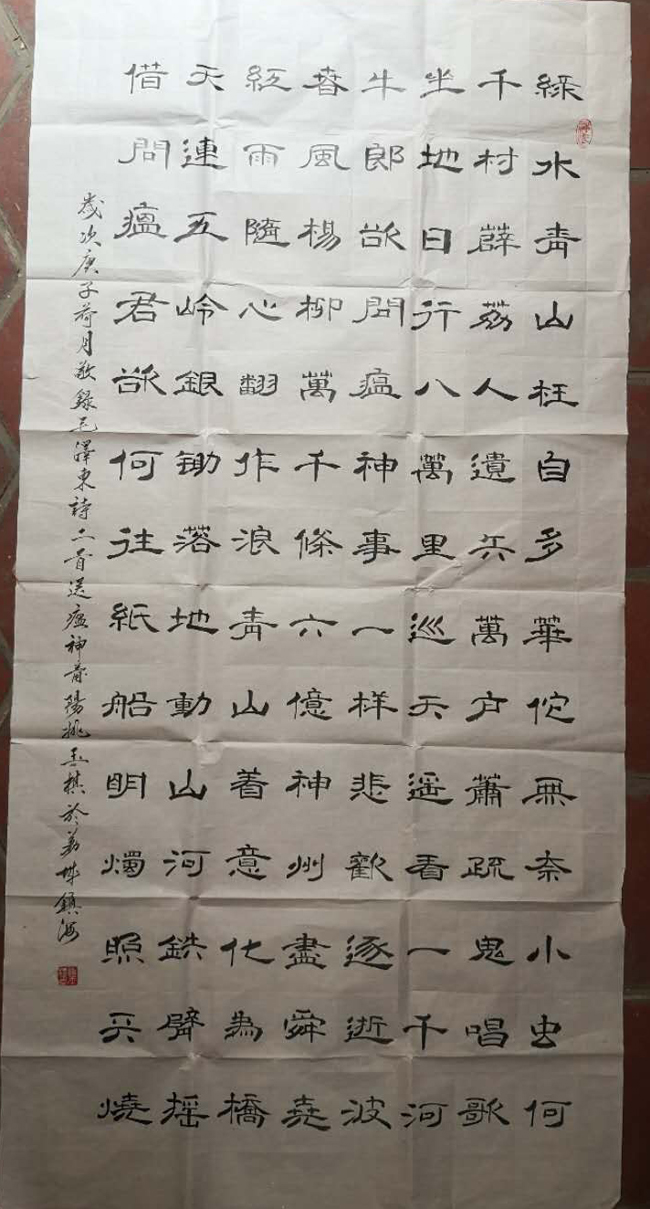 綠水青山枉自多華佗無奈小虫何
千村薜荔人遺矢萬户蕭疏鬼唱歌
坐地日行八萬里巡天遥看一千河
牛郎欲問瘟神事一样悲歡逐逝波
春風楊柳萬千條六億神州盡舜堯
紅雨隨心翻作浪青山着意化為橋
天連五岭銀锄落地動山河鉄臂摇
借問瘟君欲何往紙船明燭照天燒
歲次庚子荷月敬錄毛澤東詩二首送瘟神莆陽姚玉棋於荔城鎮海